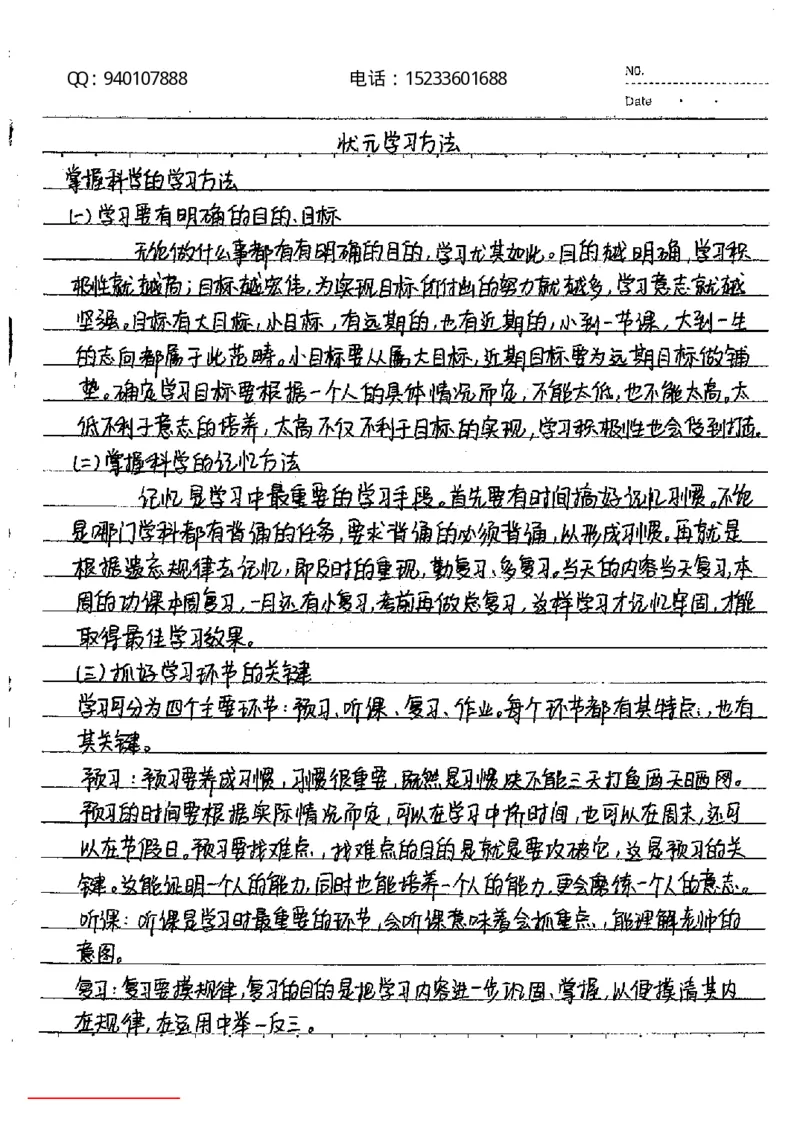 QQ：940107888
电话：15233601688
NO.
Date
状元学习方法
掌握科学的学习方法
(一)学习要有明确的目的、目标
无论做什么事都有有明确的目的，学习尤其如此。目的越明确，学习积
极性就越高；目标越宏伟，为实现目标所付出的努力就越多，学习意志就越
坚强。目标有大目标，小目标，有远期的，也有近期的，小到一节课，大到一生
的志向都属于此范畴。小目标要从属大目标，近期目标要为远期目标做铺
垫。确定学习目标要根据一个人的具体情况而定，不能太低，也不能太高。太
低不利于意志的培养，太高不仅不利于目标的实现，学习积极性也会受到打击。
(二)掌握科学的记忆方法
记忆是学习中最重要的学习手段。首先要有时间搞好记忆习惯。不论
是哪门学科都有背诵的任务，要求背诵的必须背诵，从形成习惯。再就是
根据遗忘规律去记忆，即及时的重现，勤复习、多复习。当天的内容当天复习，本
周的功课本周复习，一月还有小复习，考前再做总复习，这样学习才记忆牢固，才能
取得最佳学习效果。
(三)抓好学习环节的关键
学习可分为四个主要环节：预习、听课、复习、作业。每个环节都有其特点，也有
其关键。
预习：预习要养成习惯，习惯很重要，既然是习惯决不能三天打鱼两天晒网。
预习的时间要根据实际情况而定，可以在学习中挤时间，也可以在周末，还可
以在节假日。预习要找难点，找难点的目的是就是要攻破它，这是预习的关
键。这能证明一个人的能力，同时也能培养一个人的能力，更会磨练一个人的意志。
听课：听课是学习时最重要的环节，会听课意味着会抓重点，能理解老师的
意图。
复习：复习要摸规律，复习的目的是把学习内容进一步巩固、掌握，以便摸清其内
在规律，在运用中举一反三。